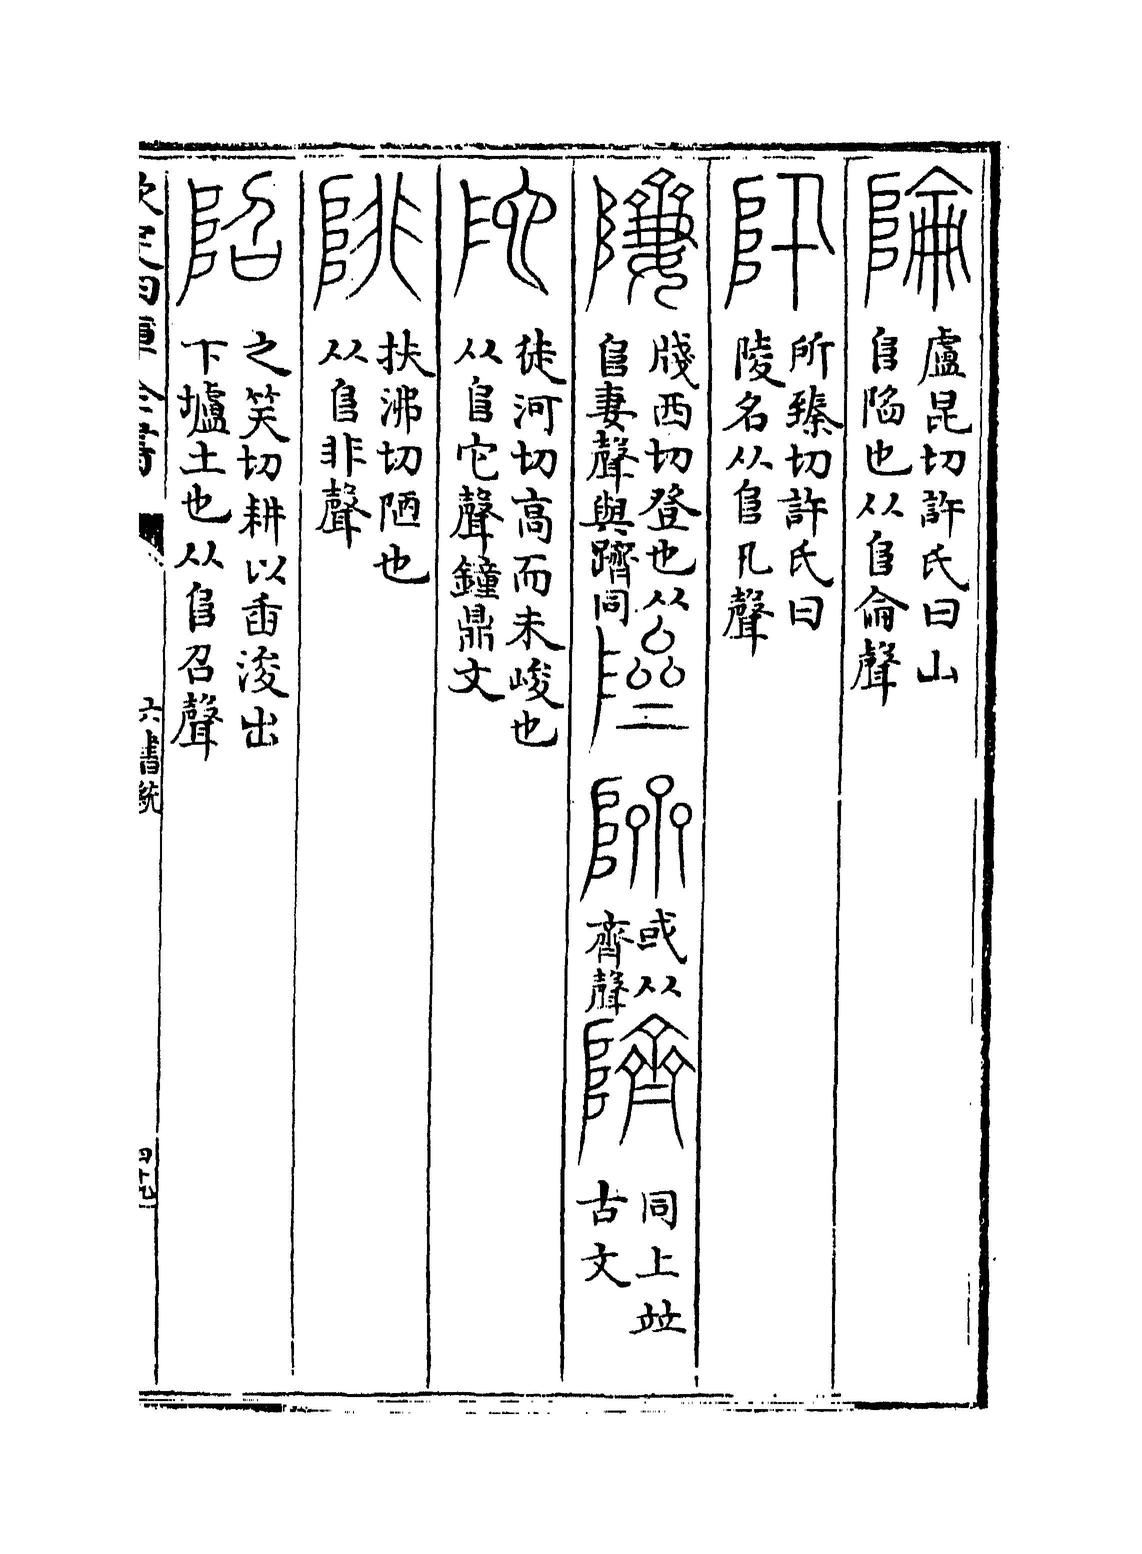 陯
盧昆切許氏曰山
𨸏陷也从𨸏侖聲
阠
所臻切許氏曰
陵名从𨸏卂聲
牋西切登也从
𨸏妻聲與躋同
或从
齊聲
隮
同上竝
古文
陀
徒河切高而未峻也
从𨸏它聲鐘鼎文
陫
扶沸切陋也
从𨸏非聲
䧂
之笑切耕以臿浚出
下壚土也从𨸏召聲
欽定四庫全書
六書統
四十九